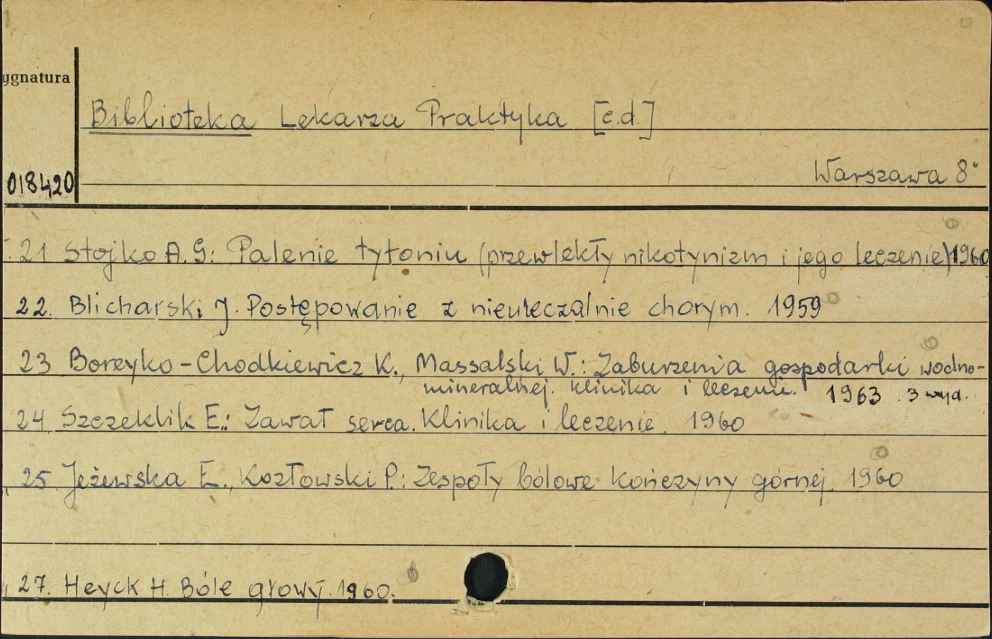 ygnatura
Biblioteka Lekarza Praktyka [c.d.]
018420
Warszawa 8°
21 Stojko A.G: Palenie tytoniu (przewlekły nikotynizm i jego leczenie) 1960
22. Blicharski J. Postępowanie z nieuleczalnie chorym. 1959
23 Boreyko-Chodkiewicz K., Massalski W.: Zaburzenia gospodarki wodno-
mineralnej. klinika i leczenie. 1963. 3 wyd.
24. Szczeklik E.: Zawał serca. Klinika i leczenie. 1960
25 Jeżewska E., Kozłowski P.: Zespoły bólowe kończyny górnej. 1960
27. Heyck H. Bóle głowy. 1960.